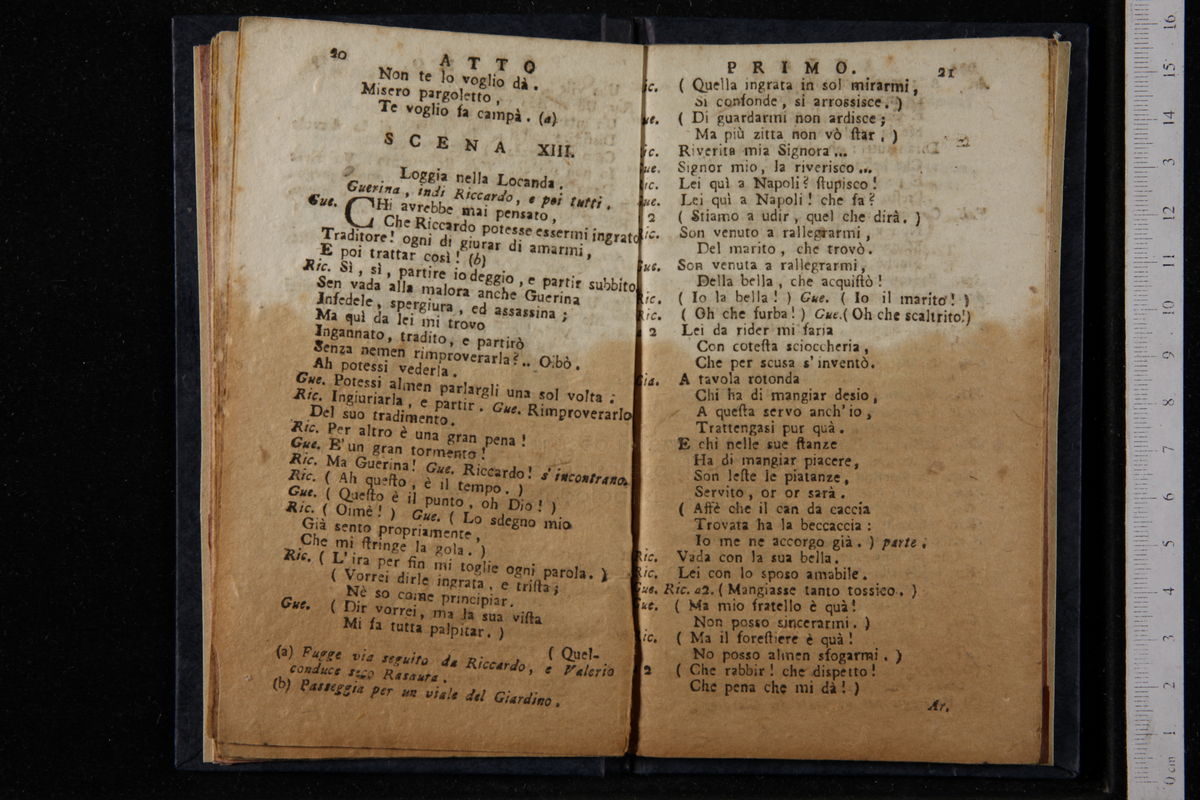 20
ATTO
Non te lo voglio dà.
Misero pargoletto,
Te voglio fa campà. (a)
SCENA XIII.
Loggia nella Locanda.
Guerina, indi Riccardo, e poi tutti.
Gue. CHi avrebbe mai pensato,
Che Riccardo potesse essermi ingrato
Traditore! ogni dì giurar di amarmi,
E poi trattar così! (b)
Ric. Sì, sì, partire io deggio, e partir subbito
Sen vada alla malora anche Guerina
Infedele, spergiura, ed assassina;
Ma quì da lei mi trovo
Ingannato, tradito, e partirò
Senza nemen rimproverarla?.. Oibò.
Ah potessi vederla.
Gue. Potessi almen parlargli una sol volta.
Ric. Ingiuriarla, e partir. Gue. Rimproverarlo
Del suo tradimento.
Ric. Per altro è una gran pena!
Gue. E' un gran tormento!
Ric. Ma Guerina! Gue. Riccardo! s'incontrano.
Ric. ( Ah questo, è il tempo. )
Gue. ( Questo è il punto, oh Dio! )
Ric. ( Oimè! ) Gue. ( Lo sdegno mio
Già sento propriamente,
Che mi stringe la gola. )
Ric. ( L'ira per fin mi toglie ogni parola. )
( Vorrei dirle ingrata, e trista;
Nè so come principiar.
Gue. ( Dir vorrei, ma la sua vista
Mi fa tutta palpitar. )
( Quel-
(a) Fugge via seguito da Riccardo, e Valerio
conduce seco Rasaura.
(b) Passeggia per un viale del Giardino.
PRIMO.
21
ic. ( Quella ingrata in sol mirarmi,
Si confonde, si arrossisce. )
ue. ( Di guardarmi non ardisce;
Ma più zitta non vò star. )
ic. Riverita mia Signora...
ue. Signor mio, la riverisco...
ic. Lei quì a Napoli? stupisco!
ue. Lei quì a Napoli! che fa?
2 ( Stiamo a udir, quel che dirà. )
Ric. Son venuto a rallegrarmi,
Del marito, che trovò.
Gue. Son venuta a rallegrarmi,
Della bella, che acquistò!
Ric. ( Io la bella! ) Gue. ( Io il marito! )
Ric. ( Oh che furba! ) Gue. ( Oh che scaltrito!)
a 2 Lei da rider mi faria
Con cotesta scioccheria,
Che per scusa s'inventò.
Gia. A tavola rotonda
Chi ha di mangiar desio,
A questa servo anch'io,
Trattengasi pur quà.
E chi nelle sue stanze
Ha di mangiar piacere,
Son leste le piatanze,
Servito, or or sarà.
( Affè che il can da caccia
Trovata ha la beccaccia:
Io me ne accorgo già. ) parte.
Ric. Vada con la sua bella.
Ric. Lei con lo sposo amabile.
Gue. Ric. a2. ( Mangiasse tanto tossico. )
Gue. ( Ma mio fratello è quà!
Non posso sincerarmi. )
Ric. ( Ma il forestiere è quà!
No posso almen sfogarmi. )
2 ( Che rabbir! che dispetto!
Che pena che mi dà! )
Ar.
0 cm 1 2 3 4 5 6 7 8 9 10 11 12 13 14 15 16